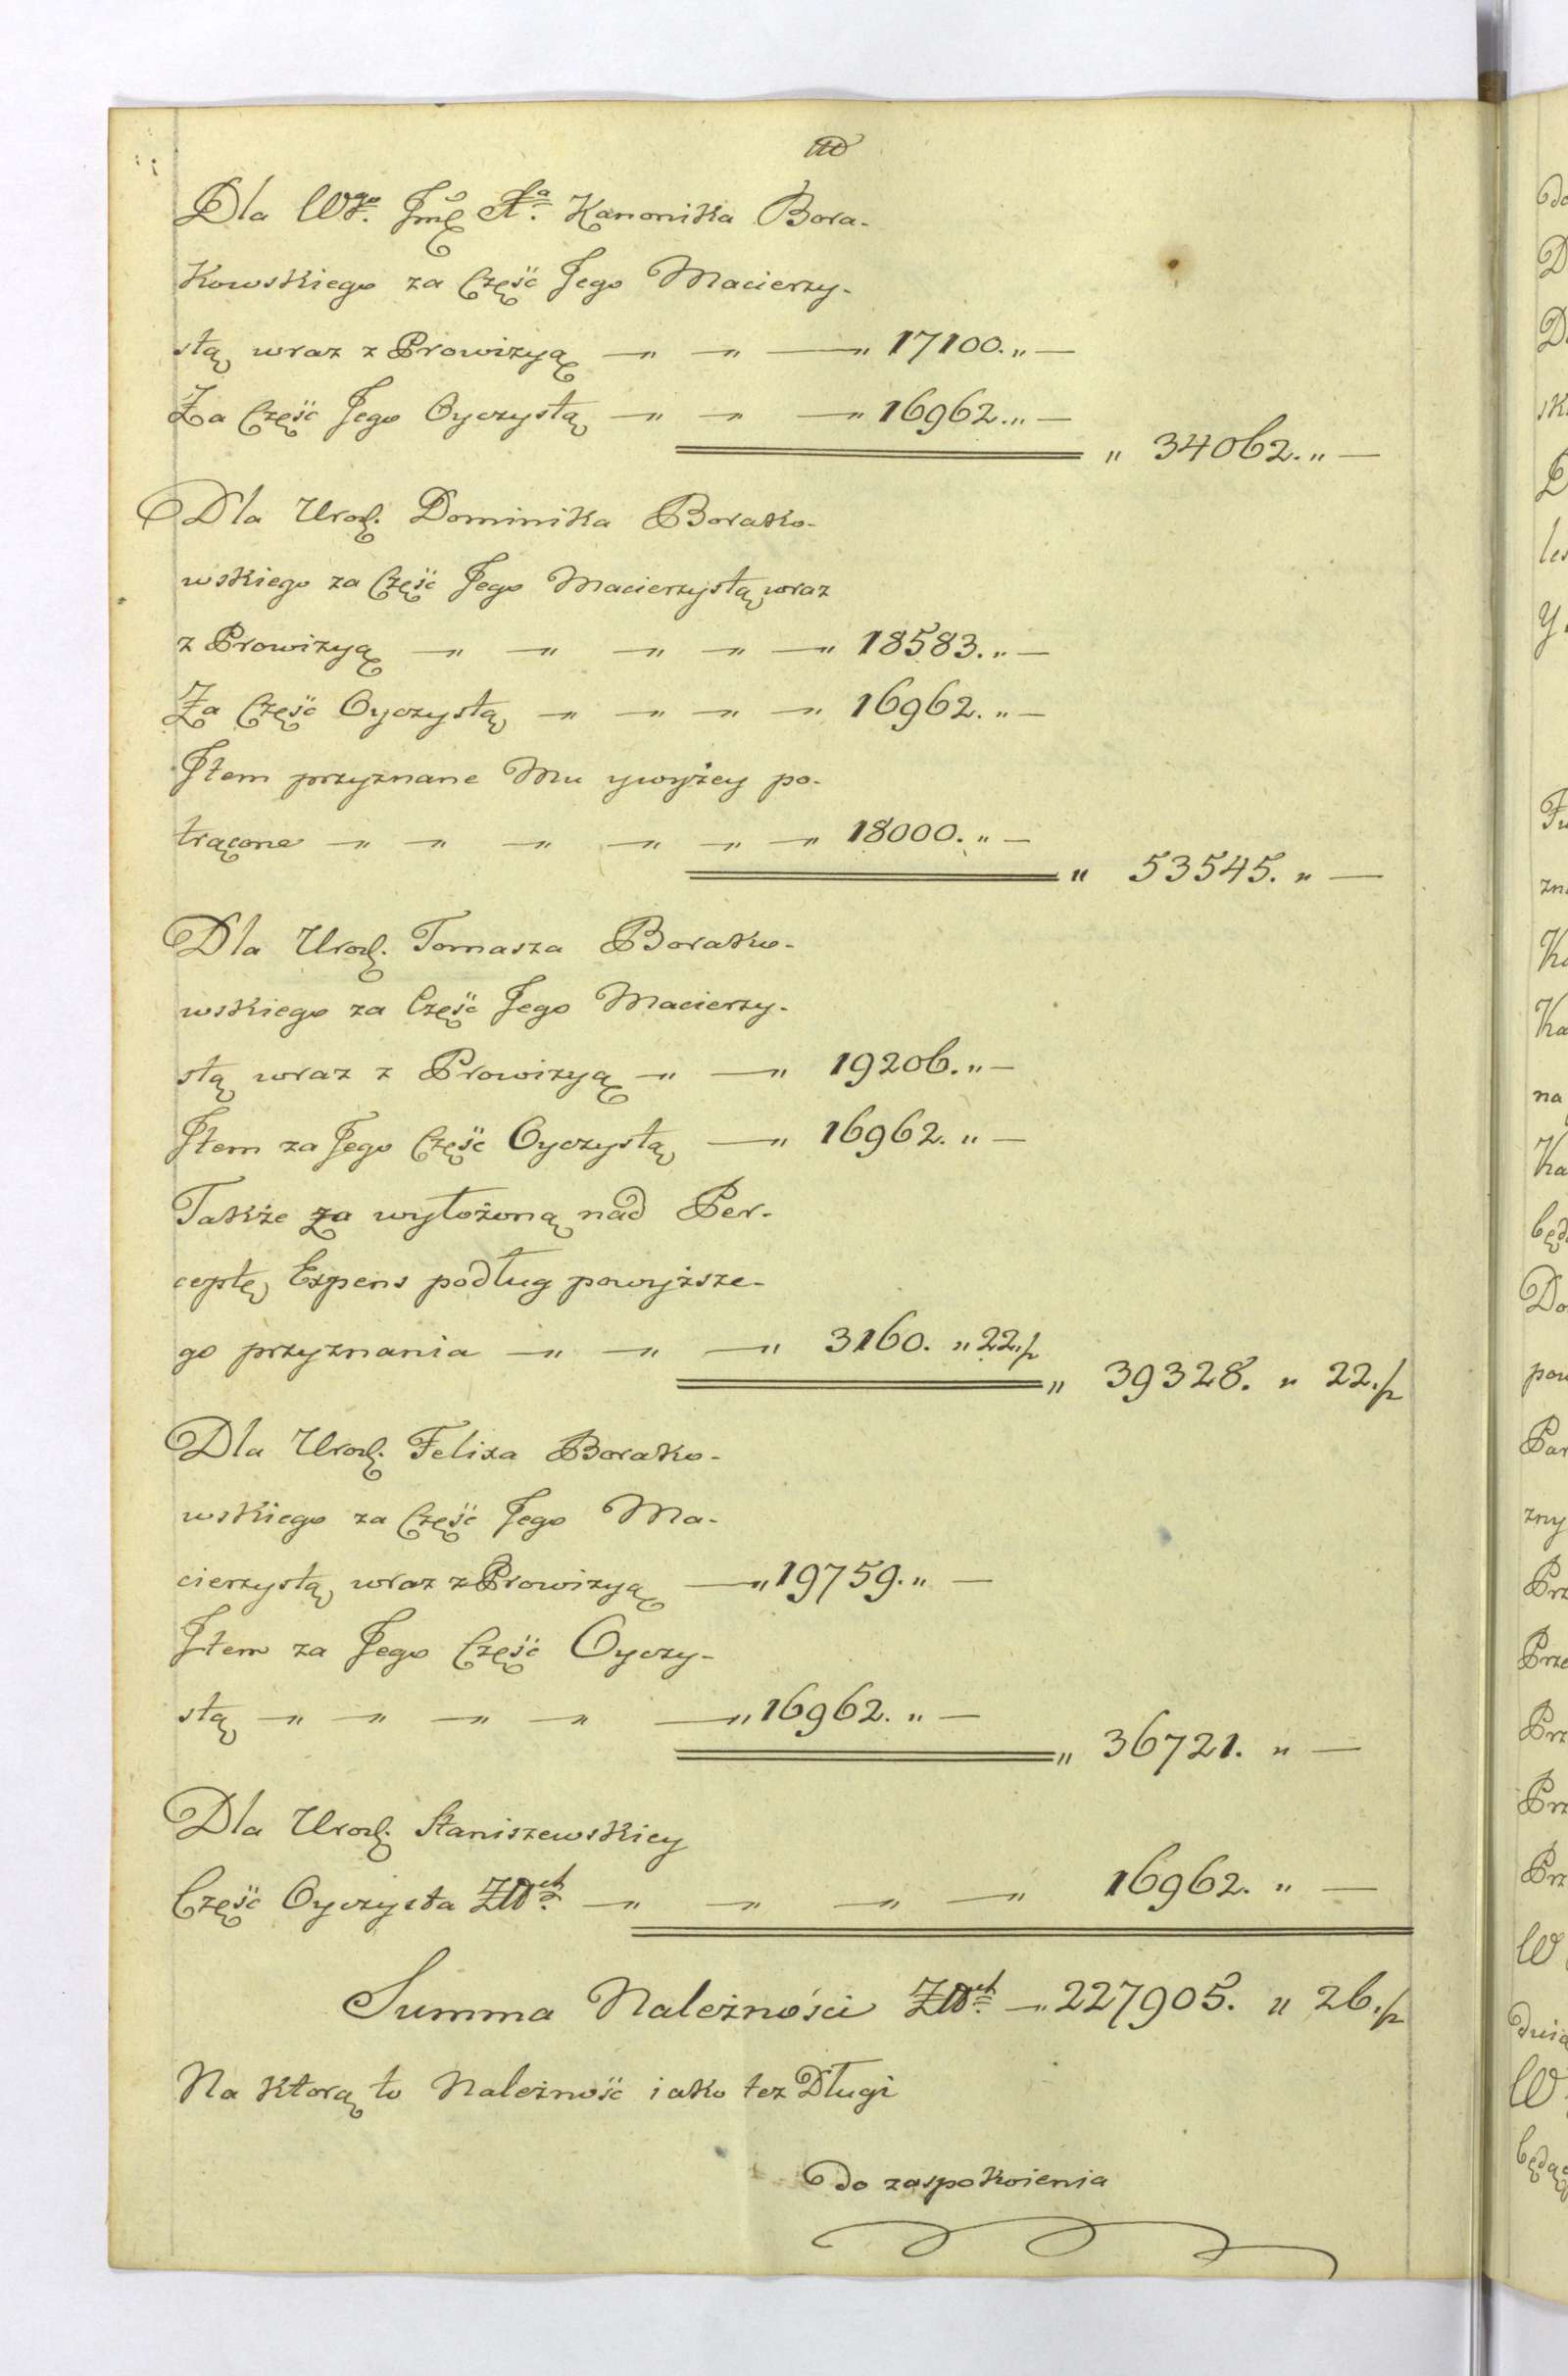 Dla Wgo. Jmć Xa. Kanonika Bora-
kowskiego za Część Jego Macierzy-
stą wraz z Prowizyą —„ —„ —„ 17100.„ —
Za Część Jego Oyczystą —„ — —„ 16962.„ —
„ 34062.„ —
Dla Urod. Dominika Borako-
wskiego za Część Jego Macierzystą wraz
z Prowizyą —„ —„ —„ —„ —„ 18583.„ —
Za Część Oyczystą —„ —„ —„ —„ 16962.„ —
Item przyznane Mu ywyżey po-
trącone —„ —„ —„ —„ —„ —„ 18000.„ —
„ 53545.„ —
Dla Urod. Tomasza Borako-
wskiego za Część Jego Macierzy-
stą wraz z Prowizyą —„ —„ 19206.„ —
Item za Jego Część Oyczystą —„ 16962.„ —
Także za wyłożoną nad Per-
ceptę Expens podług powyższe-
go przyznania —„ —„ —„ 3160.„ 22.p
„ 39328.„ 22.p
Dla Urod. Felixa Borako-
wskiego za Część Jego Ma-
cierzystą wraz z Prowizyą —„ 19759.„ —
Item za Jego Część Oyczy-
stą —„ —„ —„ —„ —„ 16962.„ —
„ 36721.„ —
Dla Urod. Staniszewskiey
Część Oyczysta Złłch. —„ —„ —„ —„ 16962.„ —
Summa Należności Złłch. —„ 227905.„ 26.p
Na którą to Należność iako tez Długi
do zaspokoienia